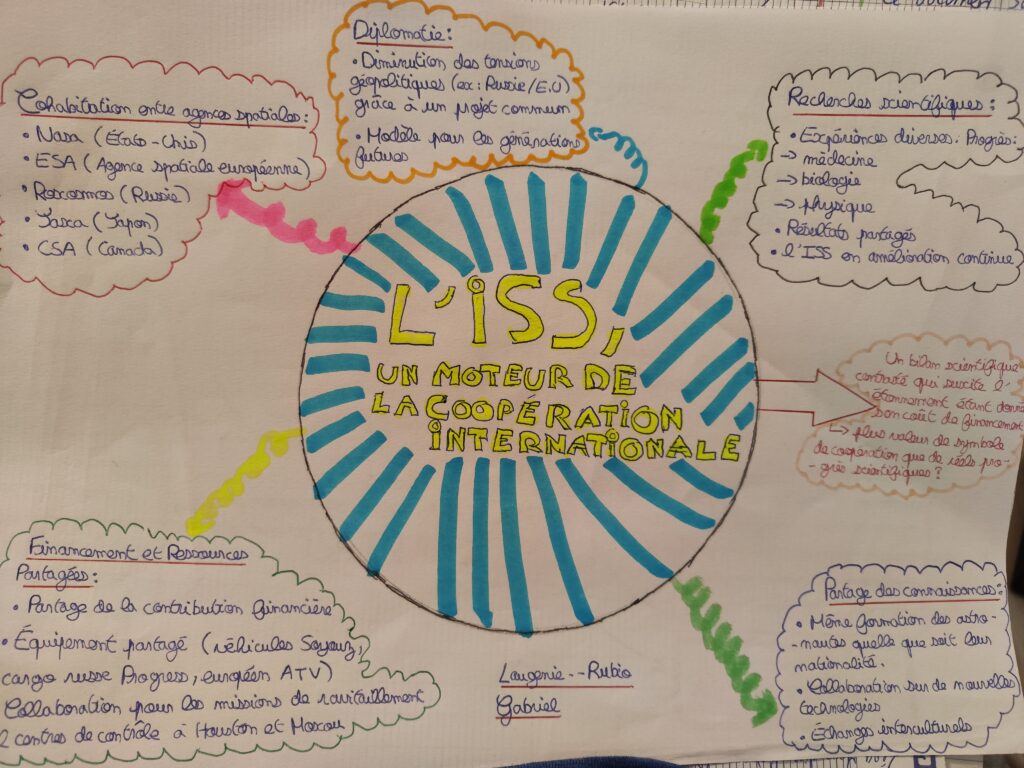 Diplomatie:
• Diminution des tensions
géopolitiques (ex: Russie/E.U)
grâce à un projet commun
• Modèle pour les générations
futures
Cohabitation entre agences spatiales:
• Nasa (États-Unis)
• ESA (Agence spatiale européenne)
• Roscosmos (Russie)
• Jaxa (Japon)
• CSA (Canada)
Recherches scientifiques:
• Expériences diverses. Progrès:
→ médecine
→ biologie
→ physique
• Résultats partagés
• l'ISS en amélioration continue
L'ISS,
UN MOTEUR DE
LA COOPÉRATION
INTERNATIONALE
Un bilan scientifique
contrasté qui suscite l'
étonnement étant donné
son coût de financement
↳ plus valeur de symbole
de coopération que de réels pro-
-grès scientifiques?
Financement et Ressources
Partagées:
• Partage de la contribution financière
• Équipement partagé (véhicules Soyouz,
cargo russe Progress, européen ATV)
Collaboration pour les missions de ravitaillement
2 centres de contrôle à Houston et Moscou
Partage des connaissances:
• Même formation des astro-
-nautes quelle que soit leur
nationalité.
• Collaboration sur de nouvelles
technologies
• Échanges interculturels
Laugenie--Rubio
Gabriel